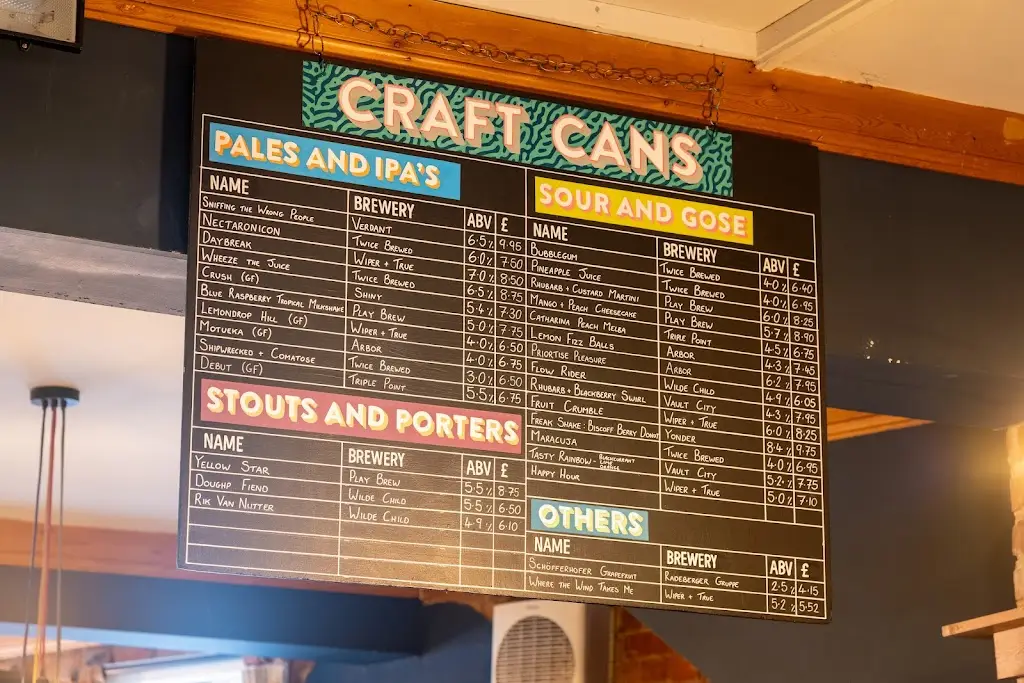 CRAFT CANS
PALES AND IPA'S
NAME BREWERY ABV £
Sniffing the Wrong People Verdant 6.5% 9.95
Nectaronicon Twice Brewed 6.0% 7.50
Daybreak Wiper + True 7.0% 8.50
Wheeze the Juice Twice Brewed 6.5% 8.75
Crush (GF) Shiny 5.4% 7.30
Blue Raspberry Tropical Milkshake Play Brew 5.0% 7.75
Lemondrop Hill (GF) Wiper + True 4.0% 6.50
Motueka (GF) Arbor 4.0% 6.75
Shipwrecked + Comatose Twice Brewed 3.0% 6.50
Debut (GF) Triple Point 5.5% 6.75
STOUTS AND PORTERS
NAME BREWERY ABV £
Yellow Star Play Brew 5.5% 8.75
Doughp Fiend Wilde Child 5.5% 6.50
Rik Van Nutter Wilde Child 4.9% 6.10
SOUR AND GOSE
NAME BREWERY ABV £
Bubblegum Twice Brewed 4.0% 6.40
Pineapple Juice Twice Brewed 4.0% 6.95
Rhubarb + Custard Martini Play Brew 6.0% 8.25
Mango + Peach Cheesecake Play Brew 5.7% 8.90
Catharina Peach Melba Triple Point 4.5% 6.75
Lemon Fizz Balls Arbor 4.3% 7.45
Priortise Pleasure Arbor 6.2% 7.95
Flow Rider Wilde Child 4.9% 6.05
Rhubarb + Blackberry Swirl Vault City 4.3% 7.95
Fruit Crumble Wiper + True 6.0% 8.25
Freak Shake: Biscoff Berry Donut Yonder 8.4% 9.75
Maracuja Twice Brewed 4.0% 6.95
Tasty Rainbow - Blackcurrant Lime Orange Vault City 5.2% 7.75
Happy Hour Wiper + True 5.0% 7.10
OTHERS
NAME BREWERY ABV £
Schöfferhofer Grapefruit Radeberger Gruppe 2.5% 4.15
Where the Wind Takes Me Wiper + True 5.2% 5.52